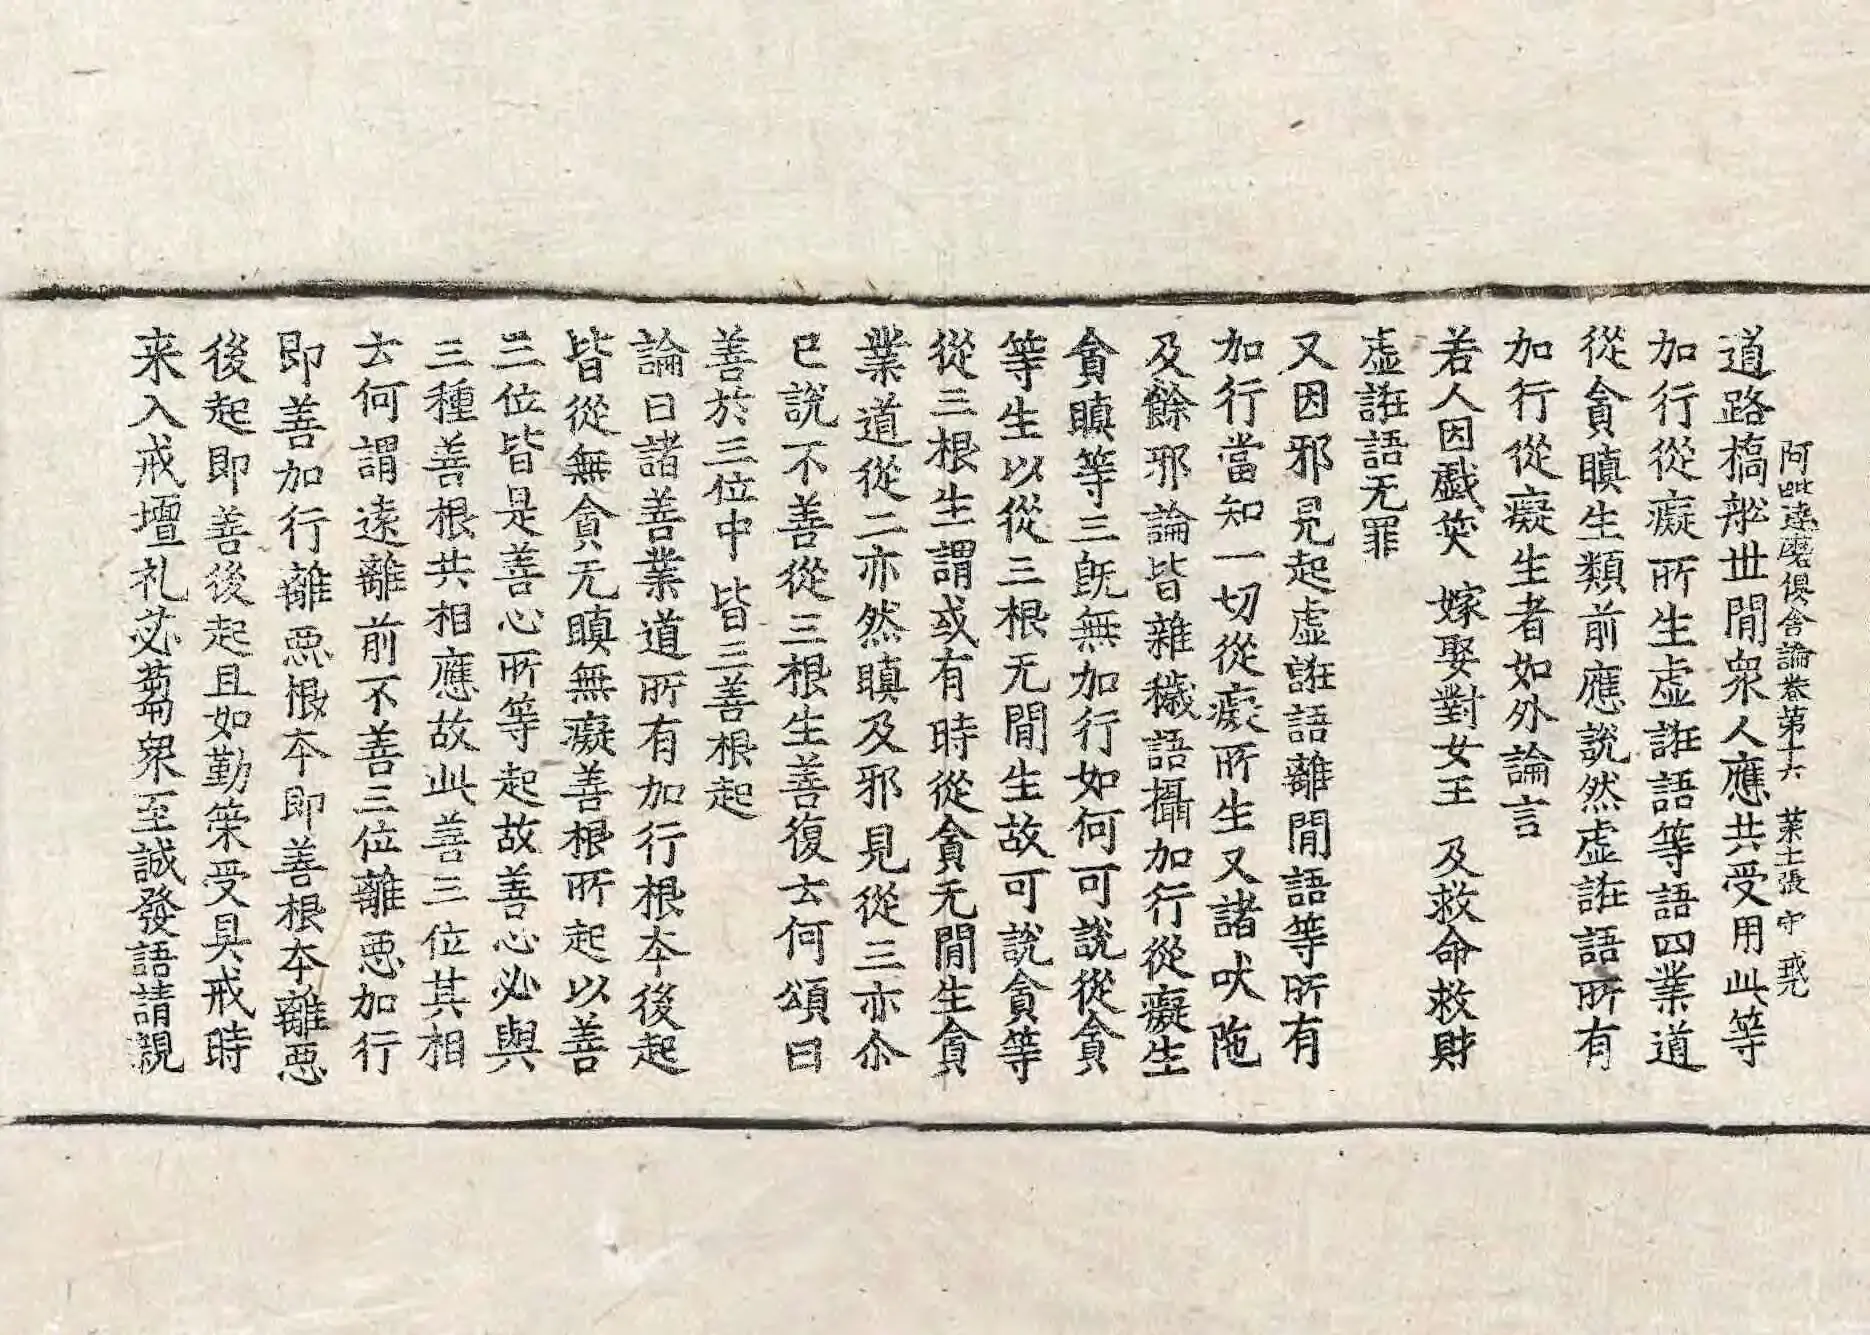 阿毗達磨俱舍論卷第十六 苐七張 守 戒
道路橋舩世間衆人應共受用此等
加行從癡所生虛誑語等語四業道
從貪瞋生類前應說然虛誑語所有
加行從癡生者如外論言
若人因戲笑 嫁娶對女王 及救命救財
虛誑語无罪
又因邪見起虛誑語離間語等所有
加行當知一切從癡所生又諸吠陁
及餘邪論皆雜穢語攝加行從癡生
貪瞋等三旣無加行如何可說從貪
等生以從三根无間生故可說貪等
從三根生謂或有時從貪无間生貪
業道從二亦然瞋及邪見從三亦尒
已說不善從三根生善復云何頌曰
善於三位中 皆三善根起
論曰諸善業道所有加行根夲後起
皆從無貪无瞋無癡善根所起以善
三位皆是善心所等起故善心必與
三種善根共相應故此善三位其相
云何謂遠離前不善三位離惡加行
即善加行離惡根夲即善根夲離惡
後起即善後起且如勤策受具戒時
来入戒壇礼苾蒭衆至誠發語請親